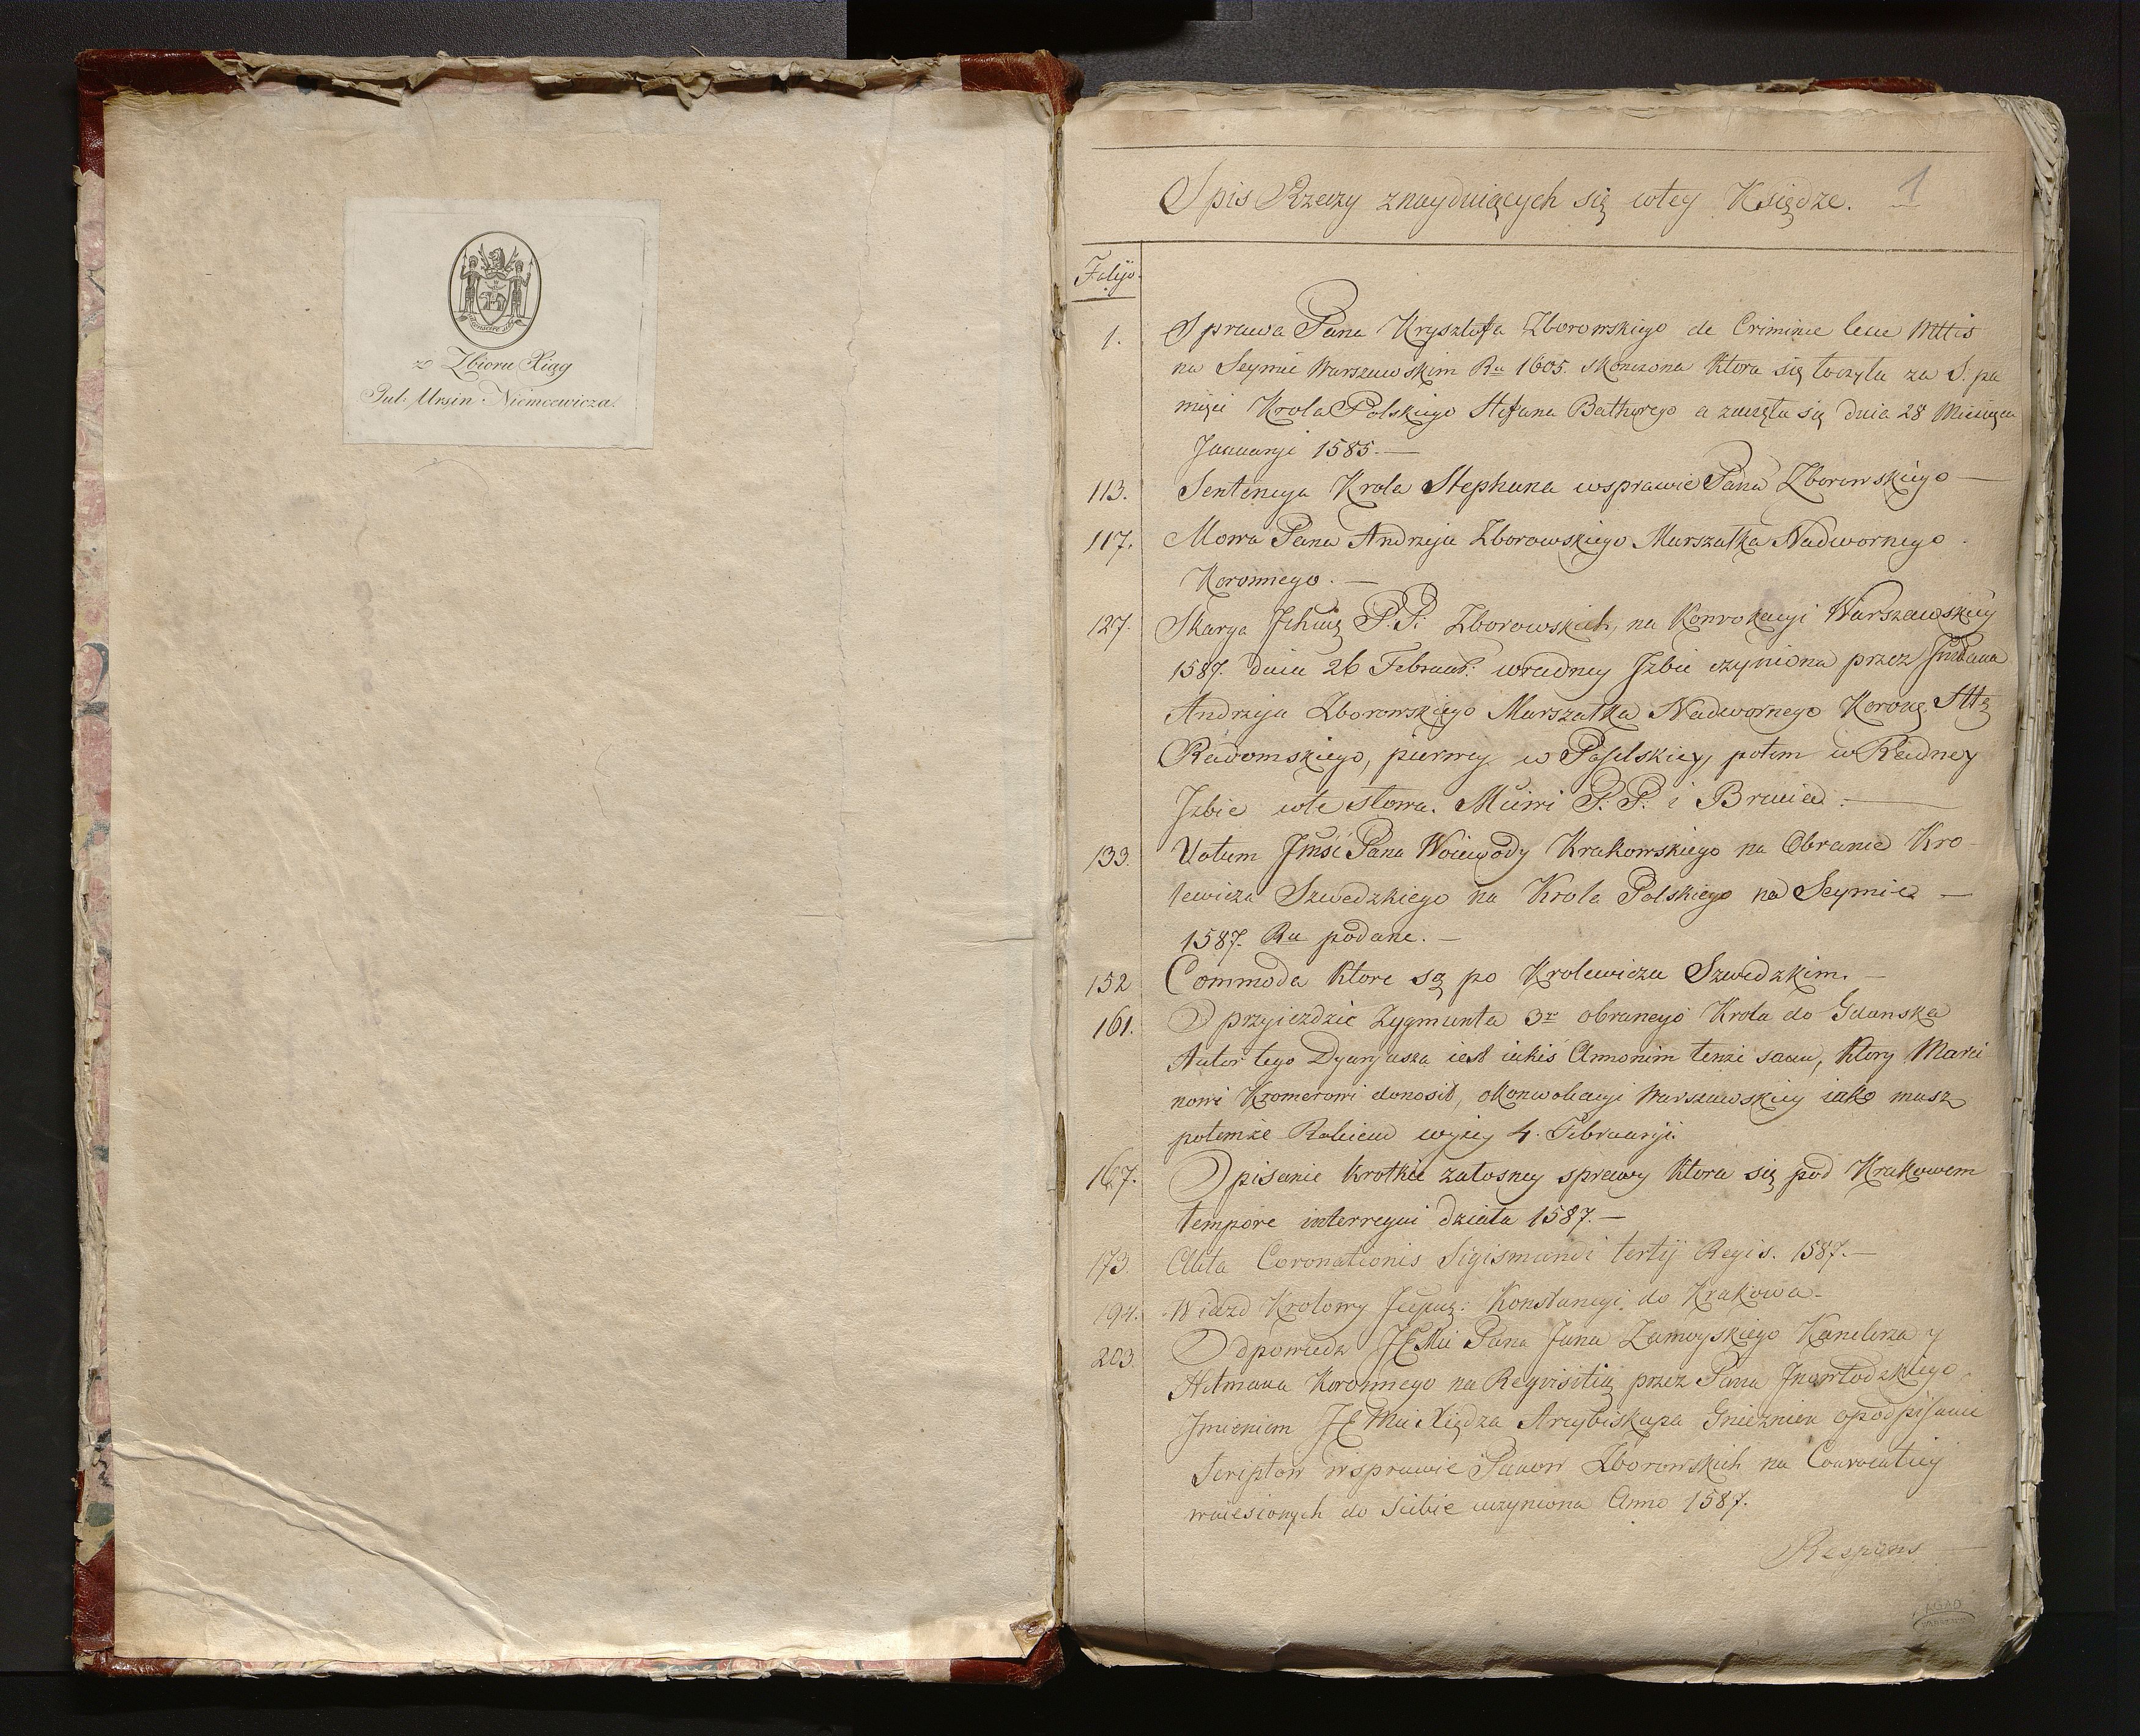 z Zbioru Xiąg
Jul: Ursin Niemcewicza.
1
Spis Rzeczy znayduiących się wtey Księdze.
Folijo.
1. Sprawa Pana Krysztofa Zborowskiego de Crimine lese Mttis
na Seymie Warszawskim Ru 1605. skonczona Ktora się toczyła za S. pa
mięci Krola Polskiego Stefana Bathorego a zaczęta się dnia 28 Miesiąca
Januaryi 1585.—
113. Sentencya Krola Stephana wsprawie Pana Zborowskiego —
117. Mowa Pana Andrzeja Zborowskiego Marszałka Nadwornego
Koronnego. —
127. Skarga Ichmę P.P. Zborowskich, na Konwokacyi Warszawskiey
1587. dnia 26 Februar: wradney Jzbie czyniona przez JmPana
Andrzeja Zborowskiego Marszałka Nadwornego Koronę Sttę
Radomskiego, pierwey w Poselskiey, potem w Radney
Jzbie wte słowa. Mciwi P.P. i Bracia. —
133. Votum Jmści Pana Woiewody Krakowskiego na Obranie Kro-
lewicza Szwedzkiego na Krola Polskiego na Seymie —
1587. Ru podane. —
152 Commoda Ktore są po Krolewiczu Szwedzkim. —
161. O przyiezdzie Zygmunta 3o obranego Krola do Gdanska
Autor tego Dyaryusza iest iakis Annonim tenze sam, Ktory Marci
nowi Kromerowi donosił, oKonwokacyi Warszawskiey iako masz
potemze Rokiem wyzey 4. Februaryi.
167. Opisanie krotkie załosney sprawy Ktora się pod Krakowem
tempore interregni działa 1587.—
173. Acta Coronationis Sigismundi tertij Regis. 1587.—
194. Wiazd Krolowy Konstancyi do Krakowa—
203. Odpowiedz JEMci Pana Jana Zamoyskiego Kanclerza y
Hetmana Koronnego na Requisitią przez Pana Jnowłodzkiego
Jmieniem JEMci Xiędza Arcybiskupa Gnieznien opodpisanie
Scriptow wsprawie Panow Zborowskich na Convocatiey
wniesionych do siebie uczyniona Anno 1587.
Respons —
AGAD